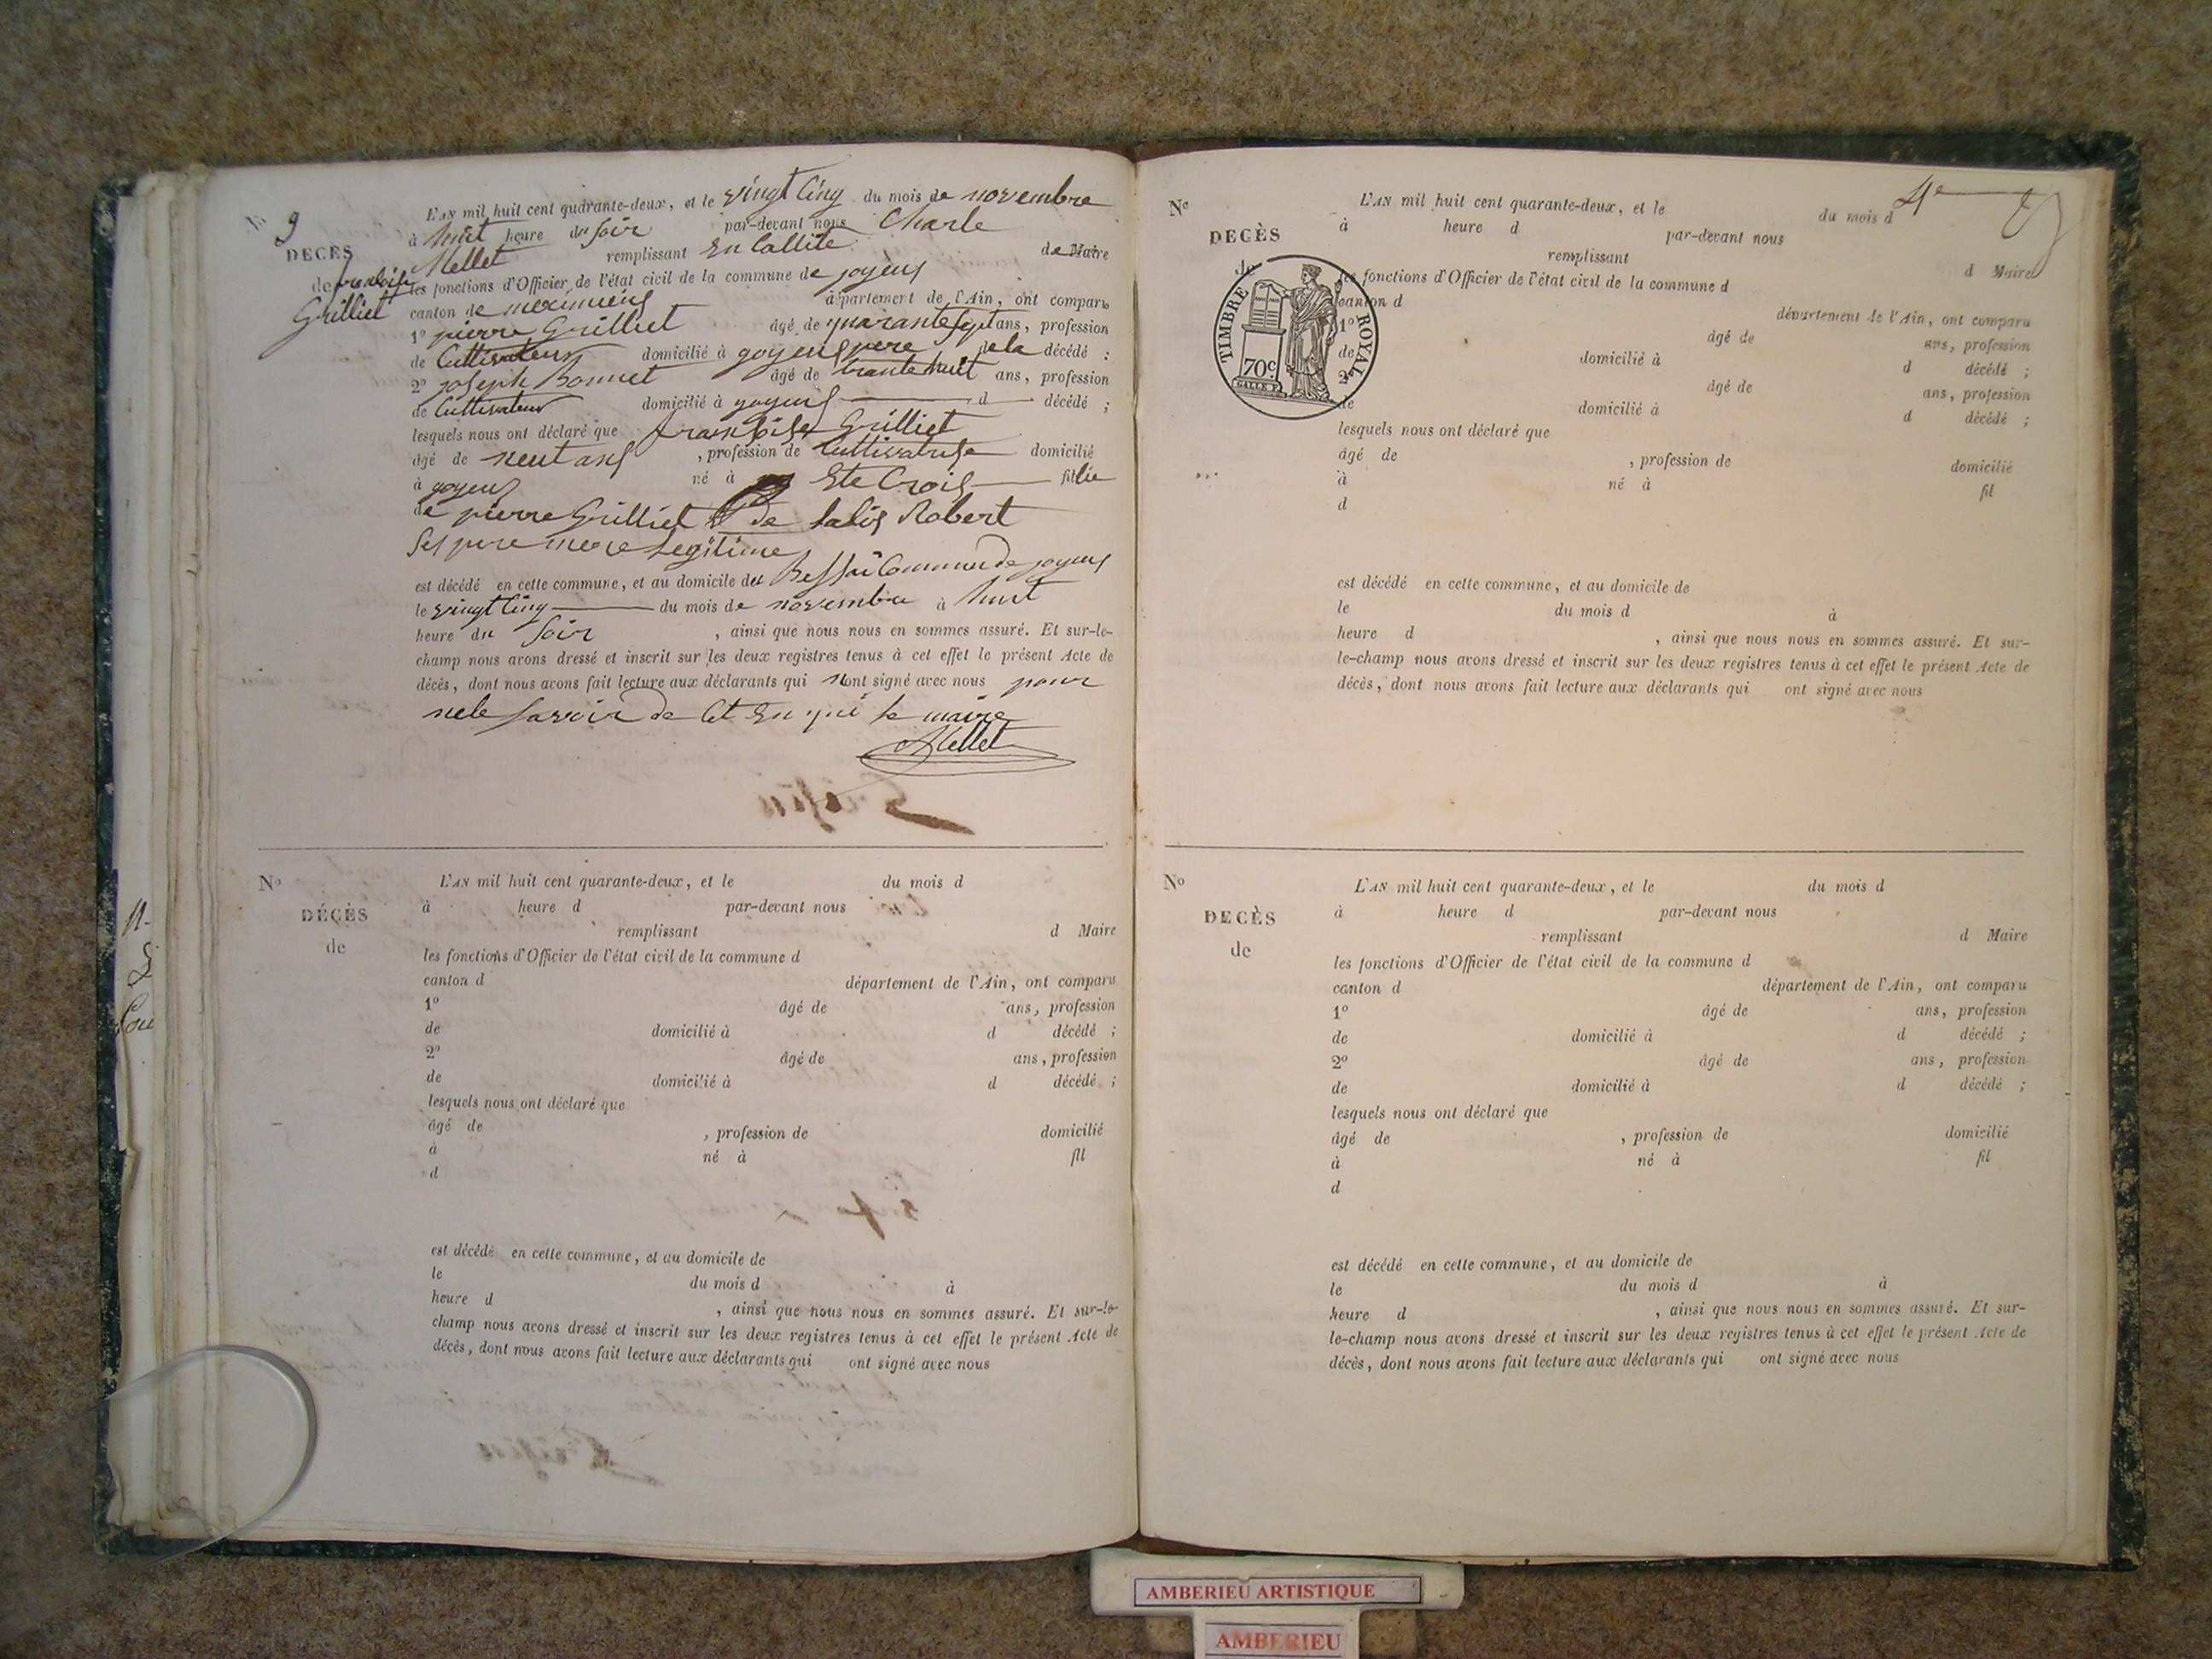 N° 9
DECÈS
de francoise
Grilliet
L'AN mil huit cent quarante-deux, et le vingt Cinq du mois de novembre
à huit heure du soir par-devant nous Charle
Mellet remplissant En Callite de Maire
les fonctions d'Officier de l'état civil de la commune de joyeux
canton de meximieux département de l'Ain, ont comparu
1° pierre Grilliet âgé de quarante sept ans, profession
de Cultivateur domicilié à joyeux pere de la décédé ;
2° joseph Bonnet âgé de trante huit ans, profession
de Cultivateur domicilié à joyeux d décédé ;
lesquels nous ont déclaré que francoise Grilliet
âgé de neuf ans , profession de Cultivatrise domicilié
à joyeux né à Ste Croix fillie
de pierre Grilliet de Robert
ses pere mere Legitime
est décédé en cette commune, et au domicile de Commune de joyeux
le vingt Cinq du mois de novembre à huit
heure du soir , ainsi que nous nous en sommes assuré. Et sur-le-
champ nous avons dressé et inscrit sur les deux registres tenus à cet effet le présent Acte de
décès, dont nous avons fait lecture aux déclarants qui nont signé avec nous pour
ne le savoir de Cet Enqui le maire
Mellet
N°
DÉCÈS
de
L'AN mil huit cent quarante-deux, et le du mois d
à heure d par-devant nous
remplissant d Maire
les fonctions d'Officier de l'état civil de la commune d
canton d département de l'Ain, ont comparu
1° âgé de ans, profession
de domicilié à d décédé ;
2° âgé de ans, profession
de domicilié à d décédé ;
lesquels nous ont déclaré que
âgé de , profession de domicilié
à né à fil
d
est décédé en cette commune, et au domicile de
le du mois d à
heure d , ainsi que nous nous en sommes assuré. Et sur-le-
champ nous avons dressé et inscrit sur les deux registres tenus à cet effet le présent Acte de
décès, dont nous avons fait lecture aux déclarants qui ont signé avec nous
N°
DECÈS
de
TIMBRE ROYAL
70c
L'AN mil huit cent quarante-deux, et le du mois d
à heure d par-devant nous
remplissant d Maire
les fonctions d'Officier de l'état civil de la commune d
canton d département de l'Ain, ont comparu
1° âgé de ans, profession
de domicilié à d décédé ;
2° âgé de ans, profession
de domicilié à d décédé ;
lesquels nous ont déclaré que
âgé de , profession de domicilié
à né à fil
d
est décédé en cette commune, et au domicile de
le du mois d à
heure d , ainsi que nous nous en sommes assuré. Et sur-
le-champ nous avons dressé et inscrit sur les deux registres tenus à cet effet le présent Acte de
décès, dont nous avons fait lecture aux déclarants qui ont signé avec nous
N°
DECÈS
de
L'AN mil huit cent quarante-deux, et le du mois d
à heure d par-devant nous
remplissant d Maire
les fonctions d'Officier de l'état civil de la commune d
canton d département de l'Ain, ont comparu
1° âgé de ans, profession
de domicilié à d décédé ;
2° âgé de ans, profession
de domicilié à d décédé ;
lesquels nous ont déclaré que
âgé de , profession de domicilié
à né à fil
d
est décédé en cette commune, et au domicile de
le du mois d à
heure d , ainsi que nous nous en sommes assuré. Et sur-
le-champ nous avons dressé et inscrit sur les deux registres tenus à cet effet le présent Acte de
décès, dont nous avons fait lecture aux déclarants qui ont signé avec nous
AMBERIEU ARTISTIQUE
AMBERIEU